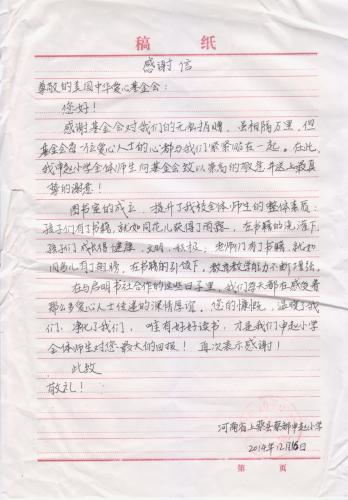 稿 纸
感谢信
尊敬的美国中华爱心基金会：
您好！
感谢基金会对我们的无私捐赠。虽相隔万里，但
基金会每一位爱心人士的心都与我们紧紧贴在一起。在此，
我申赵小学全体师生向基金会致以崇高的敬意并送上最真
挚的谢意！
图书室的成立，提升了我校全体师生的整体素质：
孩子们有了书籍，就如同花儿获得了雨露，在书籍的洗涤下，
孩子们成长得健康，文明，积极；老师们有了书籍，就如
同鸟儿有了翅膀，在书籍的引领下，教育教学能力不断增强。
在与启明书社合作的这些日子里，我们每天都在感受着
那么多爱心人士传递的深情厚谊。您的慷慨，温暖了我
们，净化了我们，唯有好好读书，才是我们申赵小学
全体师生对您最大的回报！再次表示感谢！
此致
敬礼！
河南省上蔡县蔡都申赵小学
2014年12月16日
第 页